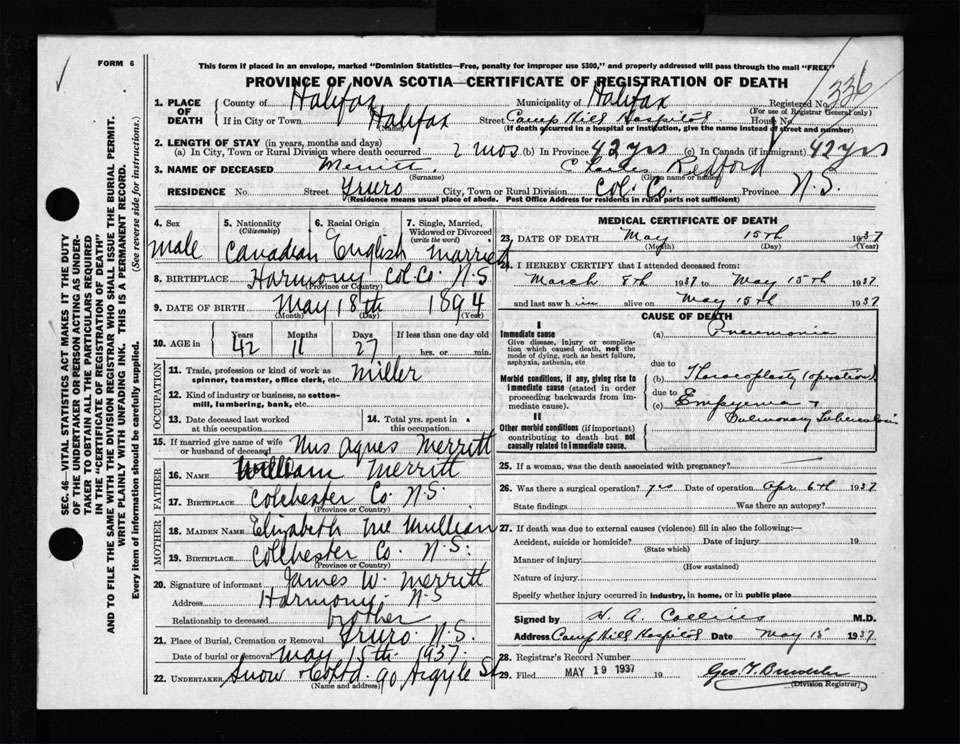 FORM 6
This form if placed in an envelope, marked "Dominion Statistics—Free, penalty for improper use $300," and properly addressed will pass through the mail "FREE"
PROVINCE OF NOVA SCOTIA—CERTIFICATE OF REGISTRATION OF DEATH
336
1. PLACE OF DEATH County of Halifax Municipality of Halifax Registered No.
(For use of Registrar General only)
If in City or Town Halifax Street Camp Hill Hospital House No.
(Name) (If death occurred in a hospital or institution, give the name instead of street and number)
2. LENGTH OF STAY (in years, months and days)
(a) In City, Town or Rural Division where death occurred 2 mos (b) In Province 42 yrs (c) In Canada (if immigrant) 42 yrs
3. NAME OF DECEASED Merritt Charles Redford
(Surname) (Given name or names)
RESIDENCE No. Street Truro City, Town or Rural Division Col. Co. Province N.S.
(Residence means usual place of abode. Post Office Address for residents in rural parts not sufficient)
4. Sex 5. Nationality (Citizenship) 6. Racial Origin 7. Single, Married, Widowed or Divorced (write the word)
male Canadian English married
8. BIRTHPLACE Harmony Col. Co. N.S
(Province or Country)
9. DATE OF BIRTH May 18th 1894
(Month) (Day) (Year)
10. AGE in Years Months Days If less than one day old
42 11 27 hrs. or min.
OCCUPATION
11. Trade, profession or kind of work as spinner, teamster, office clerk, etc. Miller
12. Kind of industry or business, as cotton-mill, lumbering, bank, etc.
13. Date deceased last worked at this occupation
14. Total yrs. spent in this occupation
15. If married give name of wife or husband of deceased Mrs Agnes Merritt
FATHER
16. NAME William Merritt
17. BIRTHPLACE Colchester Co. N.S.
(Province or Country)
MOTHER
18. MAIDEN NAME Elizabeth McMullian
19. BIRTHPLACE Colchester Co. N.S.
(Province or Country)
20. Signature of informant James W. Merritt
Address Harmony. N.S
Relationship to deceased brother
21. Place of Burial, Cremation or Removal Truro. N.S.
Date of burial or removal May 15th. 1937.
22. UNDERTAKER Snow & Co Ltd. 90 Argyle St
(Name and address)
MEDICAL CERTIFICATE OF DEATH
23. DATE OF DEATH May 15th 1937
(Month) (Day) (Year)
24. I HEREBY CERTIFY that I attended deceased from:
March 8th 1937 to May 15th 1937
and last saw him alive on May 15th 1937
CAUSE OF DEATH
I
Immediate cause
Give disease, injury or complication which caused death, not the mode of dying, such as heart failure, asphyxia, asthenia, etc
(a) Pneumonia
due to
Morbid conditions, if any, giving rise to immediate cause (stated in order proceeding backwards from immediate cause).
(b) Thoracoplasty (operation)
due to
(c) Empyema &
Pulmonary Tuberculosis
II
Other morbid conditions (if important) contributing to death but not causally related to immediate cause.
25. If a woman, was the death associated with pregnancy?
26. Was there a surgical operation? yes Date of operation Apr 6th 1937
State findings Was there an autopsy?
27. If death was due to external causes (violence) fill in also the following:—
Accident, suicide or homicide? Date of injury 19
(State which)
Manner of injury
(How sustained)
Nature of injury
Specify whether injury occurred in industry, in home, or in public place
Signed by H. A. Collins M.D.
Address Camp Hill Hospital Date May 15 1937
28. Registrar's Record Number
29. Filed MAY 19 1937 19
(Division Registrar)
SEC. 46—VITAL STATISTICS ACT MAKES IT THE DUTY
OF THE UNDERTAKER OR PERSON ACTING AS UNDER-
TAKER TO OBTAIN ALL THE PARTICULARS REQUIRED
IN THE "CERTIFICATE OF REGISTRATION OF DEATH"
AND TO FILE THE SAME WITH THE DIVISION REGISTRAR WHO SHALL ISSUE THE BURIAL PERMIT.
WRITE PLAINLY WITH UNFADING INK. THIS IS A PERMANENT RECORD.
Every item of information should be carefully supplied. (See reverse side for instructions.)